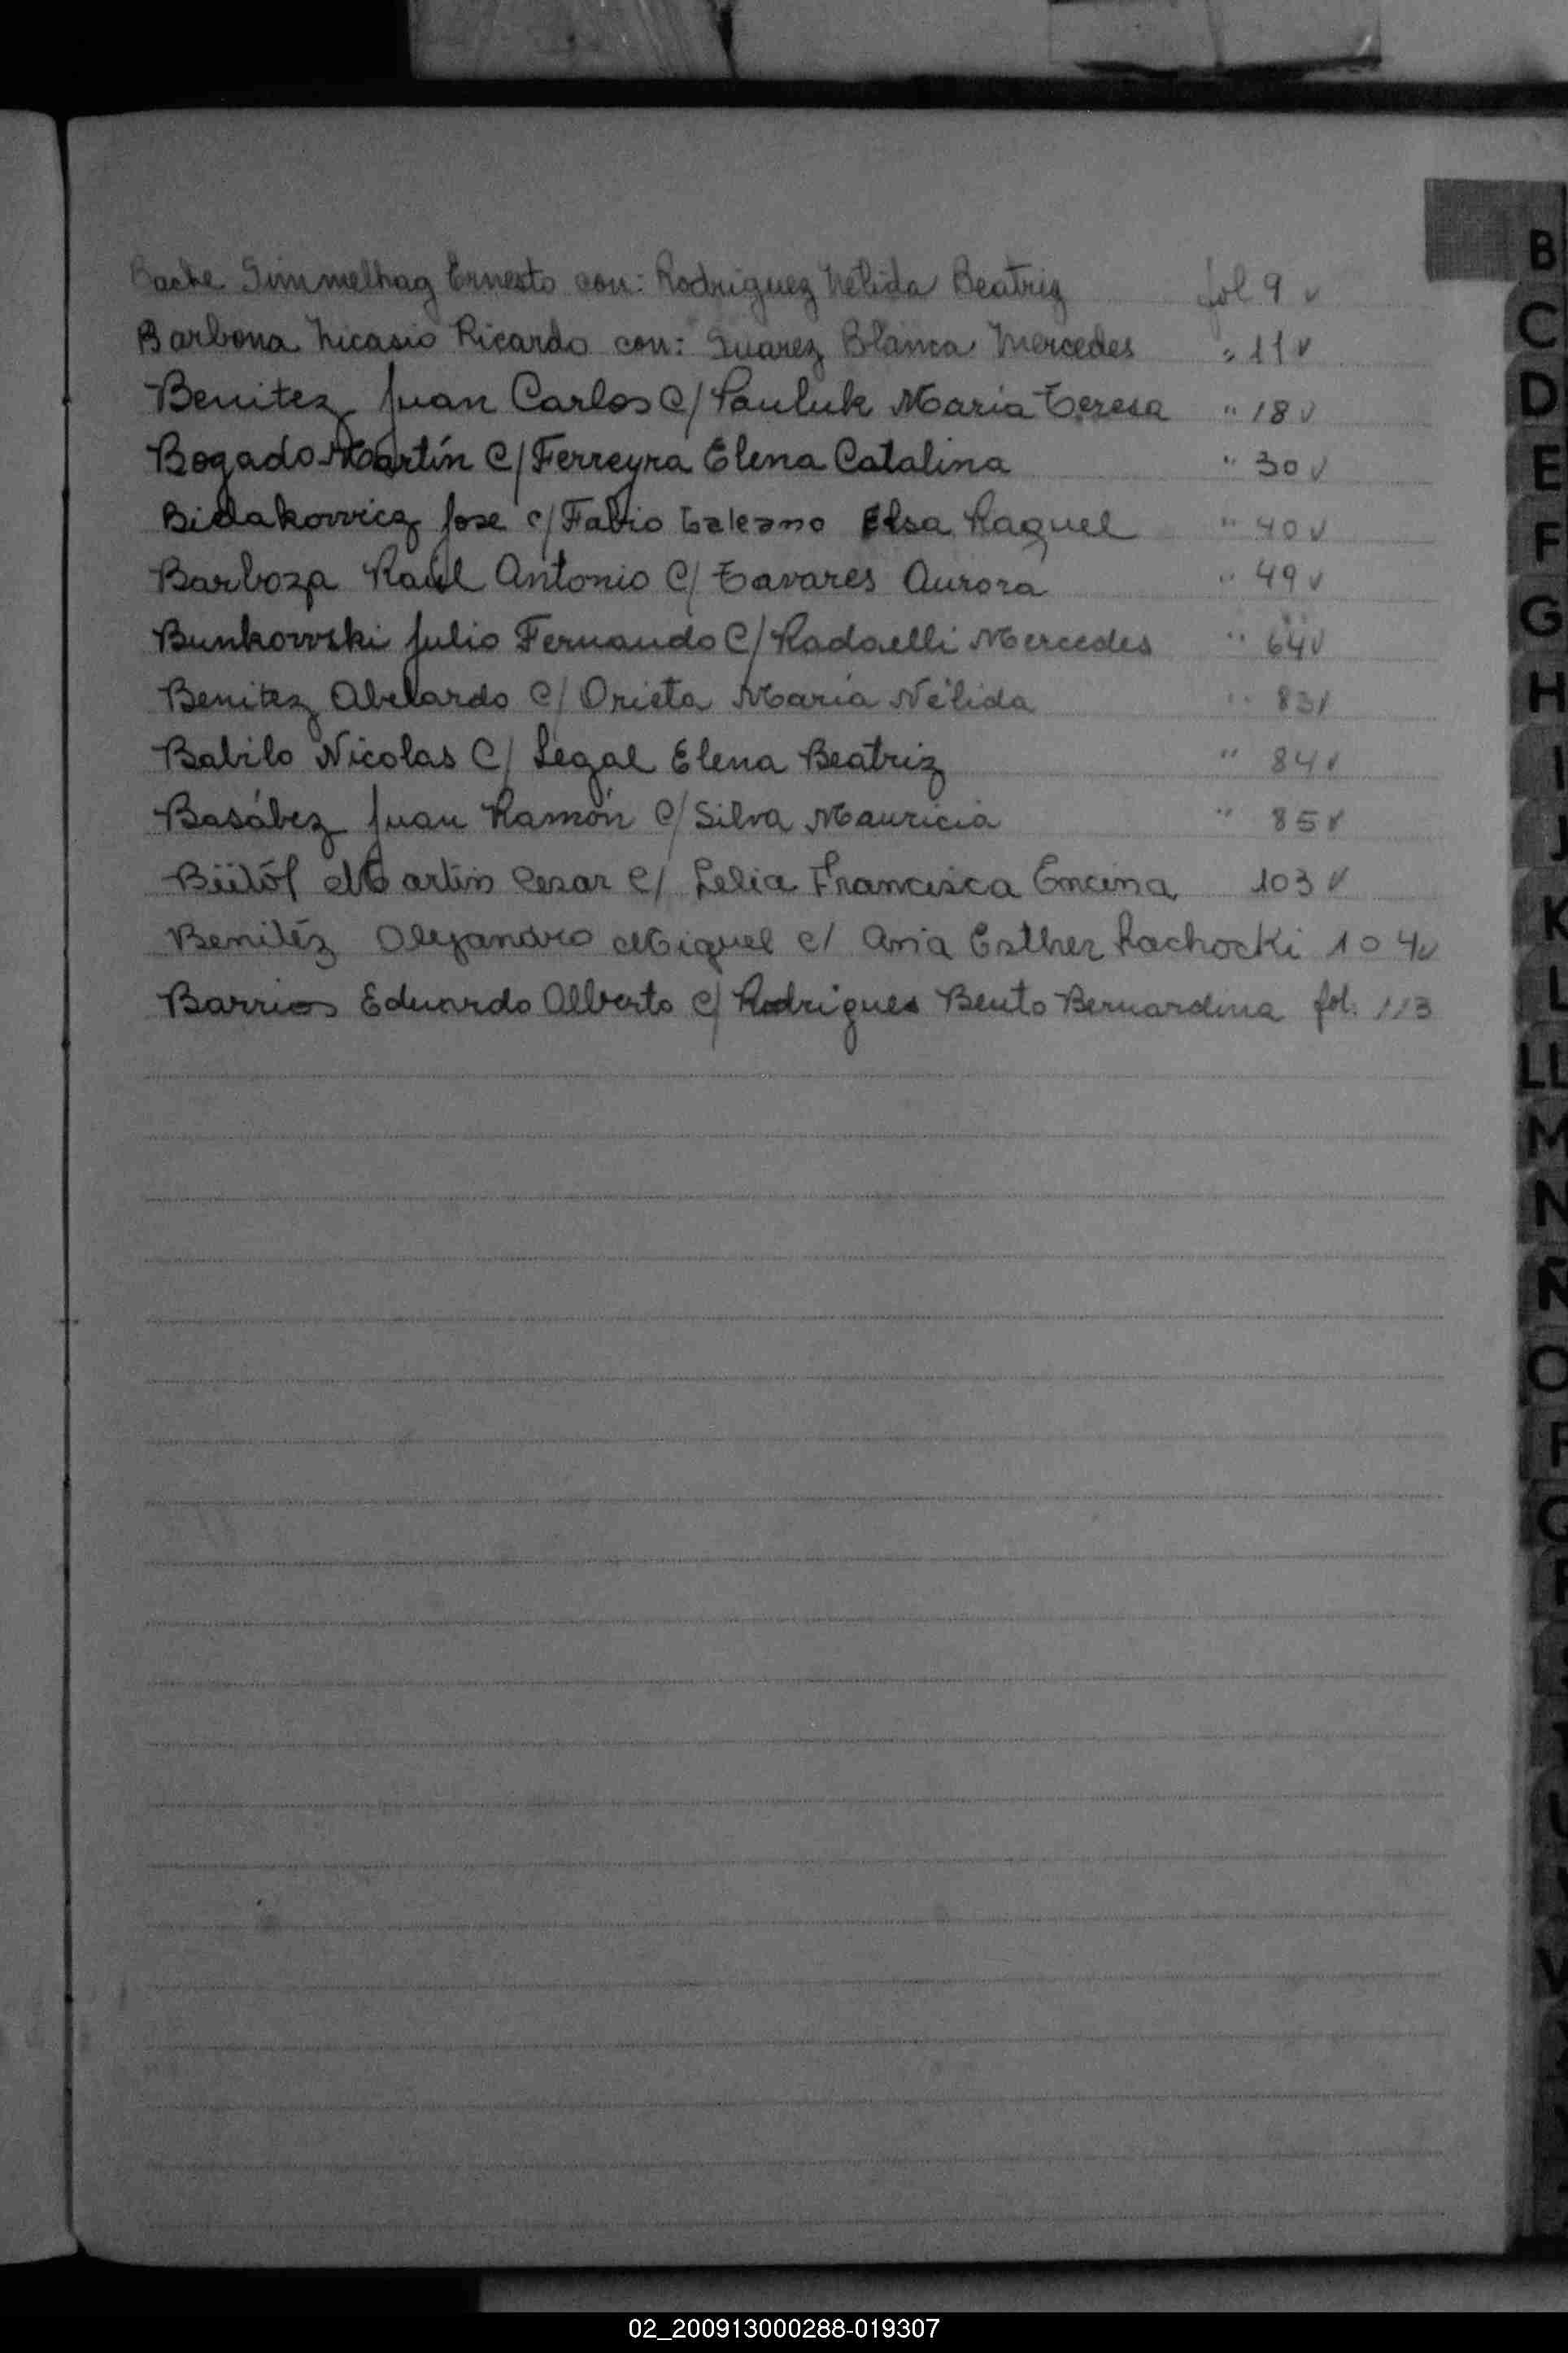 Bache Simmelhag Ernesto con: Rodriguez Nélida Beatriz fol 9 v
Barbona Nicasio Ricardo con: Suarez Blanca Mercedes " 11 v
Benitez Juan Carlos C/ Pauluk Maria Teresa " 18 v
Bogado Martín C/ Ferreyra Elena Catalina " 30 v
Bidakowicz Jose c/ Fabio Galeano Elsa Raquel " 40 v
Barboza Raúl Antonio C/ Tavares Aurora " 49 v
Bunkowski Julio Fernando C/ Radaelli Mercedes " 64 v
Benitez Abelardo C/ Orieta María Nélida " 83 v
Babilo Nicolas C/ Legal Elena Beatriz " 84 v
Basábez Juan Ramón C/ Silva Mauricia " 85 v
Martin Cesar C/ Lelia Francisca Encina 103 v
Benitéz Alejandro Miguel c/ Ana Esther Rachocki 104 v
Barrios Eduardo Alberto c/ Rodrigues Bento Bernardina fol. 113
B
C
D
E
F
G
H
I
J
K
L
LL
M
N
Ñ
O
P
Q
R
U
V
02_200913000288-019307